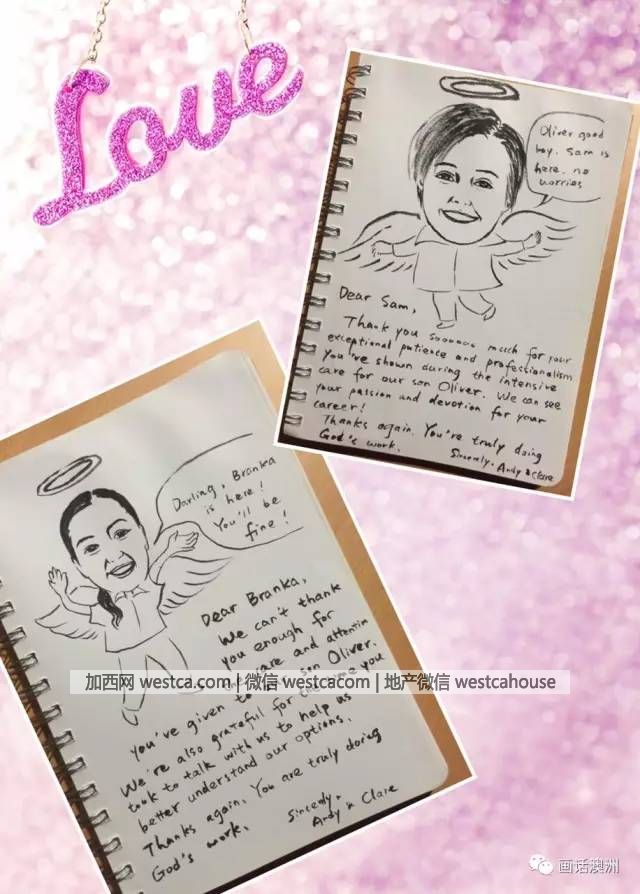 Love
Oliver good
boy. Sam is
here. no
worries
Dear Sam,
Thank you soooooo much for your
exceptional patience and professionalism
you've shown during the intensive
care for our son Oliver. We can see
your passion and devotion for your
career!
Thanks again. You're truly doing
God's work.
Sincerely, Andy & Clare
Darling, Branka
is here!
You'll be
fine!
Dear Branka,
We can't thank
you enough for
care and attention
you've given to son Oliver.
We're also grateful for the time you
took to talk with us to help us
better understand our options.
Thanks again. You are truly doing
God's work.
Sincerely,
Andy & Clare
加西网 westca.com | 微信 westcacom | 地产微信 westcahouse
画话澳洲